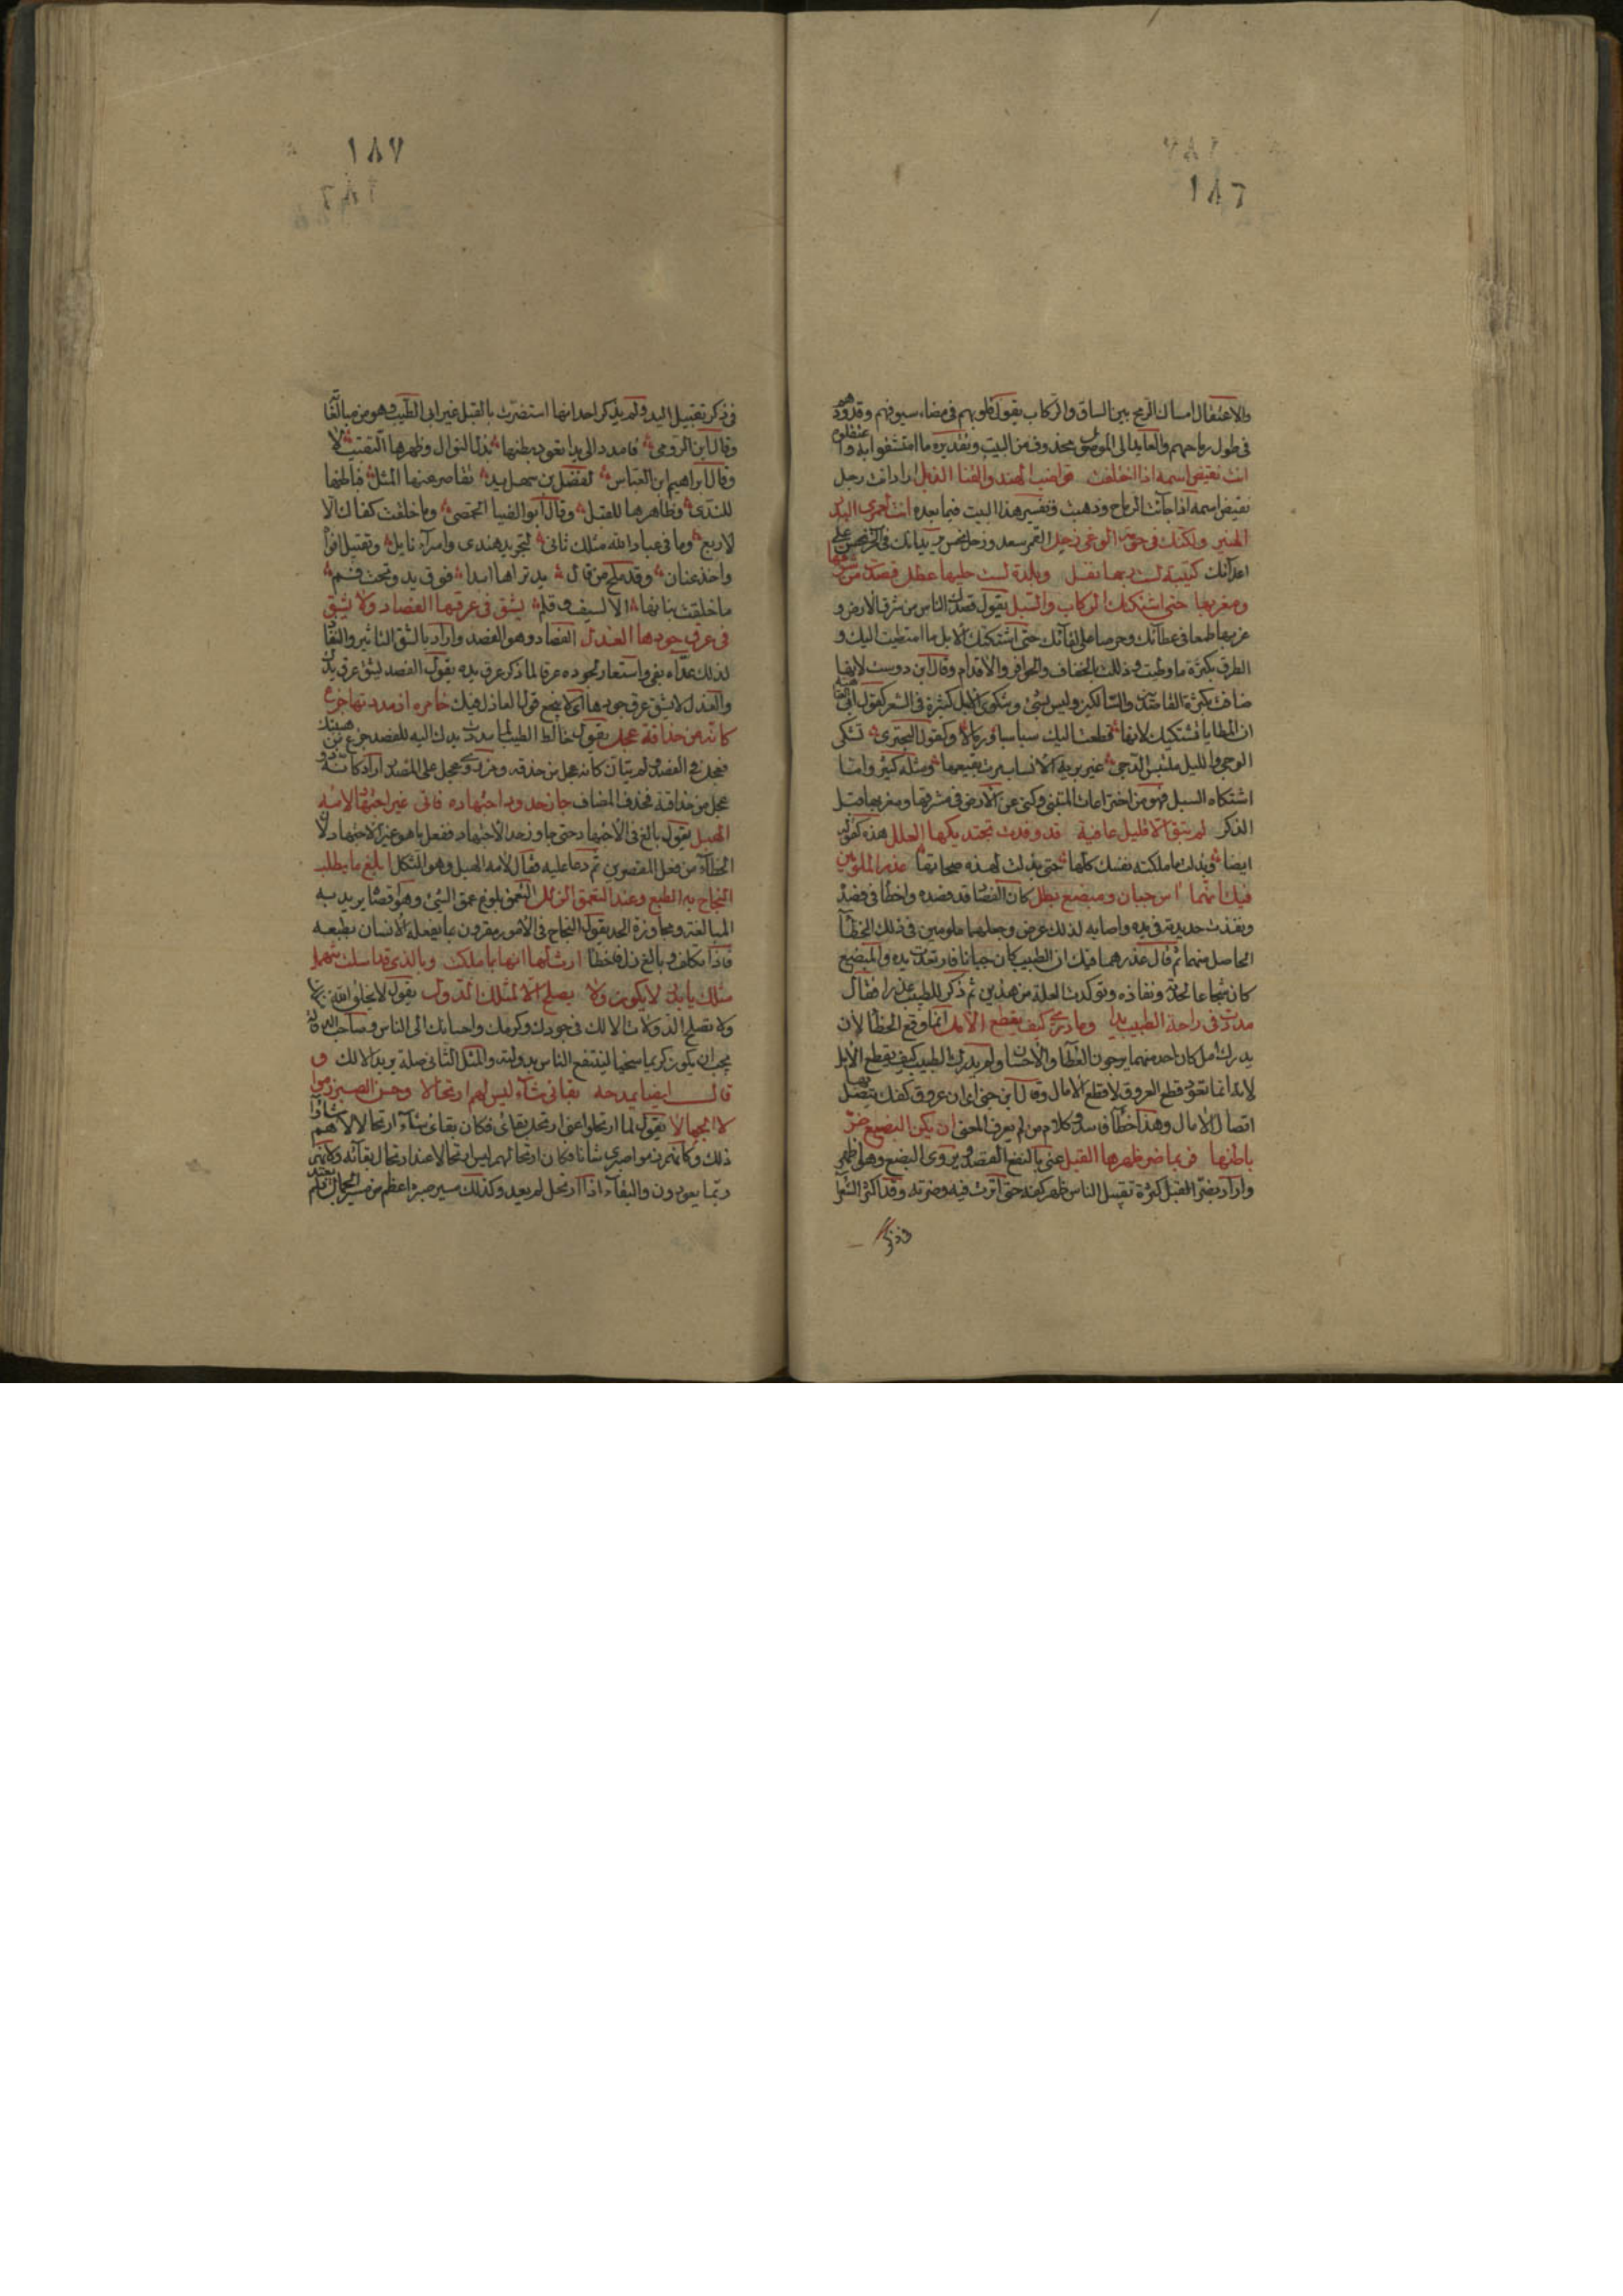 ١٨٦
والاعتقال امساك الرمح بين الساق والركاب يقول قلوبهم فى مضاء سيوفهم وقدودهم
فى طول رماحهم والعايد الى الموصول محذوف من البيت وتقديره ما امتشقوا به وما اعتقلوه
انت نقيض اسمه اذا اختلفت قواضب الهند والقنا الذبل اراد انت رجل
نقيض اسمه اذا جاءت الرماح وذهبت وتفسير هذا البيت فيما بعده انت لعمرى البدر
المنير ولكنك فى حومة الوغى زحل القمر سعد وزحل نحس يريد انك فى الحرب نحس على
اعدائك كتيبة لست ربها نفل وبلدة لست حليها عطل قصدت من شرقها
ومغربها حتى اشتكتك الركاب والسبل يقول قصدك الناس من شرق الارض و
غربها طمعا فى عطائك وحرصا على لقائك حتى اشتكتك الابل مما امتطيت اليك و
الطرق بكثرة ما وطئت وذلك بالخفاف والحوافر والاقدام وقال ابن دوست لانها
ضاقت بكثرة القاصدين والسالكين وليس بشئ وشكوى الابل كثيرة فى الشعر كقول ابى العتاهية
ان المطايا تشتكيك لانها قطعت اليك سباسبا ورمالا وكقول البحترى تشكى
الوجى والليل ملتبس الدجى غريرية الانساب مرت بقيعها ومثله كثير واما
اشتكاء السبل فهو من اختراعات المتنبى وكنى عن الارض فى مشرقها ومغربها قبل
الذكر لم تبق الا قليل عافية قد وفدت تجتديكها العلل هذه كقوله
ايضا وبذلت ما ملكته نفسك كلها حتى بذلت لهذه صحاتها عذر الملومين
فيك انهما آس جبان ومبضع بطل كان الفصاد قد فصده واخطأ فى فصده
ونفذت حديدته فى يده واصابه لذلك مرض وجعلهما ملومين فى ذلك الخطأ
الحاصل منهما ثم قال عذرهما فيك ان الطبيب كان جبانا فارتعدت يده والمبضع
كان شجاعا لحدته ونفاذه وتوكدت العلة من هذين ثم ذكر للطبيب عذرا فقال
مددت فى راحة الطبيب يدا وما درى كيف يقطع الامل انما وقع الخطأ لان
يدك امل كل احد منهما يرجون العطاء والاحسان ولم يدر الطبيب كيف يقطع الامل
لانه انما تعود قطع العروق لا قطع الآمال وقال ابن جنى اى ان عروق كفك يتصل بها
اتصال الآمال وهذا خطأ فاسد وكلام من لم يعرف المعنى ان يكن البضع ضر
باطنها فربما ضر ظهرها القبل عنى بالبضع الفصد ويروى البضع وهو اظهر
واراد يضر القبل كثرة تقبيل الناس ظهر كفه حتى اثرت فيه وضرته وقد اكثر الشعراء
فى ذكر
١٨٧
فى ذكر تقبيل اليد ولم يذكر احد انها استضرت بالقبل غير ابى الطيب وهو من مبالغاته
وقال ابن الرومى فامدد الى يدا تعود بطنها بذل النوال وظهرها التقبيلا
وقال ابراهيم ابن العباس لفضل بن سهل يد تقاصر عنها المثل فباطنها
للندى وظاهرها للقبل وقال ابو الضياء الحمصى وما خلقت كفاك الا
لاربع وما فى عباد الله مثلك ثانى لتجريد هندى واسداء نايل وتقبيل افواه
واخذ عنان وقد ملح من قال يد تراها ابدا فوق يد وتحت فم
ما خلقت بنانها الا لسيف وقلم يشق فى عرقها الفصاد ولا يشق
فى عرق جودها العذل الفصاد وهو الفصد واراد بالشق التاثير والنفاذ
لذلك عداه بفى واستعار لجوده عرقا لما ذكر عرق يده يقول الفصد يشق عرق يدك
والعذل لا يشق عرق جودها اى لا ينجع قول العاذل فيك خامره اذ مددتها جزع
كانه من حذاقة عجل يقول خالط الطيب لما مددت يدك اليه للفصد جزع من هيبتك
فعجل فى الفصد ولم يتأن كانه عجل من حذقه
عجل من حذاقته فحذف المضاف جاز حدود اجتهاده فاتى غير اجتهاد لامه
الهبل يقول بالغ فى الاجتهاد حتى جاوز حد الاجتهاد ففعل ما هو غير الاجتهاد لان
الخطاء من فعل المقصرين ثم دعا عليه فقال لامه الهبل وهو الثكل ابلغ ما يطلب
النجاح به الطبع وعند التعمق الزلل التعمق بلوغ عمق الشئ وهو اقصاه يريد به
المبالغة ومجاوزة الحد يقول النجاح فى الامور مقرون بما يفعله الانسان بطبعه
فاذا تكلف وبالغ زل فاخطا ارث لها انها بما ملكت وبالذى قد اسلت تنهمل
مثلك يا بدر لا يكون ولا يصلح الا لمثلك الدول يقول لا يخلق الله
ولا تصلح الدولات الا لك فى جودك وكرمك واحسانك الى الناس وصاحب الدولة
يجب ان يكون كريما سخيا لينتفع الناس بدولته والمثل الثانى صلة يريد الا لك و
قال ايضا يمدحه بقائى شاء ليس هم ارتحالا وحسن الصبر زموا
لا الجمالا يقول لما ارتحلوا عنى ارتحل بقائى فكان بقائى شاء ارتحالا لا هم شاؤا
ذلك وكانهم زموا صبرى شانا فكان ارتحالهم ليس ارتحالا عند ارتحال بقائه ولانهم
ربما يعودون والبقاء اذا ارتحل لم يعد وكذلك مسير صبره اعظم من مسير الجمال